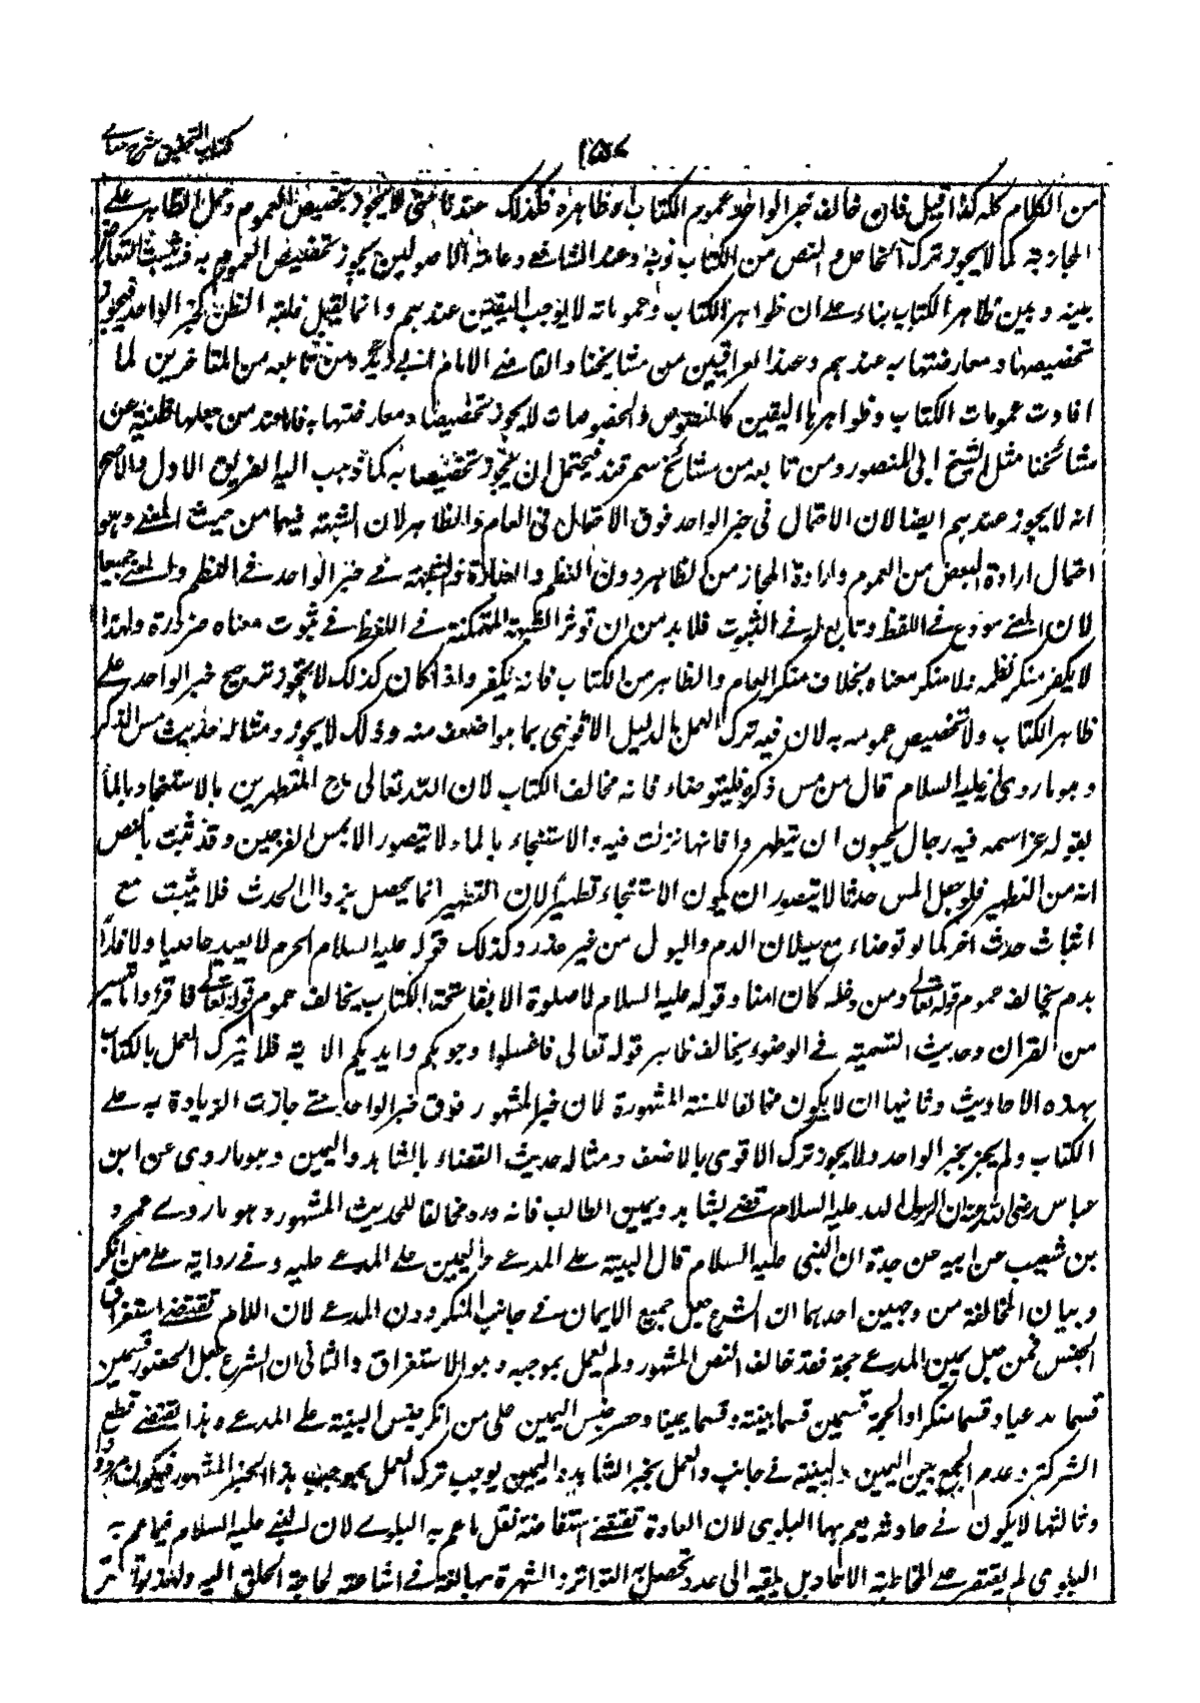 كتاب التحقيق شرح حسامي
١٥٧
من الكلام كله كذا قيل فان خالف خبر الواحد عموم الكتاب او ظاهره فكذلك عندنا حتى لا يجوز تخصيص العموم وحمل الظاهر على
المجاز به كما لا يجوز ترك الخاص و النص من الكتاب به وعند الشافعي وعامة الاصوليين يجوز تخصيص العموم به ويثبت التعارض
بينه وبين ظاهر الكتاب بناء على ان ظواهر الكتاب وعموماته لا يوجب اليقين عندهم وانما يفيد غلبة الظن كخبر الواحد فيجوز
تخصيصها ومعارضتها به عندهم وعند العراقيين من مشايخنا والقاضي الامام ابي زيد ومن تابعه من المتاخرين لما
افادت عمومات الكتاب وظواهرها اليقين كالنصوص والخصوصات لا يجوز تخصيصها ومعارضتها به فاما عند من جعلها ظنية من
مشائخنا مثل الشيخ ابي المنصور ومن تابعه من مشائخ سمرقند فيحتمل ان يجوز تخصيصها به كما ذهب اليه الفريق الاول والاصح
انه لا يجوز عندهم ايضا لان الاحتمال في خبر الواحد فوق الاحتمال في العام والظاهر لان الشبهة فيهما من حيث المعنى وهو
احتمال ارادة البعض من العموم وارادة المجاز من الظاهر دون النظم و العبارة والشبهة في خبر الواحد في النظم والمعنى جميعا
لان المعنى مودع في اللفظ وتابع له في الثبوت فلا بد من ان توثر الشبهة المتمكنة في اللفظ في ثبوت معناه ضرورة ولهذا
لا يكفر منكر لفظه ولا منكر معناه بخلاف منكر العام والظاهر من الكتاب فانه يكفر واذا كان كذلك لا يجوز ترجيح خبر الواحد على
ظاهر الكتاب ولا تخصيص عمومه به لان فيه ترك العمل بالدليل الاقوى بما هو اضعف منه وذلك لا يجوز ومثاله حديث مس الذكر
وهو ما روي انه عليه السلام قال من مس ذكره فليتوضاء فانه مخالف الكتاب لان الله تعالى مدح المتطهرين بالاستنجاء بالماء
بقوله عز اسمه فيه رجال يحبون ان يتطهروا فانها نزلت فيه والاستنجاء بالماء لا يتصور الا بمس الفرجين وقد ثبت بالنص
انه من التطهير فلو جعل المس حدثا لا يتصور ان يكون الاستنجاء تطهيرا لان التطهير انما يحصل بزوال الحدث فلا يثبت مع
اثبات حدث آخر كما لو توضاء مع سيلان الدم والبول من غير عذر وكذلك قوله عليه السلام الحرم لا يعيذ عاصيا ولا فارا
بدم يخالف عموم قوله تعالى ومن دخله كان امنا وقوله عليه السلام لا صلوة الا بفاتحة الكتاب يخالف عموم قوله تعالى فاقرؤا ما تيسر
من القران وحديث التسمية في الوضوء يخالف ظاهر قوله تعالى فاغسلوا وجوهكم وايديكم الاية فلا يترك العمل بالكتاب
بهذه الاحاديث وثانيها ان لا يكون مخالفا للسنة المشهورة لان خبر المشهور فوق خبر الواحد حتى جازت الزيادة به على
الكتاب ولم يجز بخبر الواحد ولا يجوز ترك الاقوى بالاضعف ومثاله حديث القضاء بالشاهد واليمين وهو ما روى عن ابن
عباس رضي الله عنه ان الرسول عليه السلام قضى بشاهد ويمين الطالب فانه ورد مخالفا للحديث المشهور وهو ما روى عمرو
بن شعيب عن ابيه عن جده ان النبي عليه السلام قال البينة على المدعي واليمين على المدعى عليه وفي رواية على من انكر
وبيان المخالفة من وجهين احدهما ان الشرع جعل جميع الايمان في جانب المنكر دون المدعي لان اللام تقتضي استغراق
الجنس فمن جعل يمين المدعي حجة فقد خالف النص المشهور ولم يعمل بموجبه وهو الاستغراق والثاني ان الشرع جعل الخصوم قسمين
قسما مدعيا وقسما منكرا والحجة قسمين قسما بينة وقسما يمينا وحصر جنس اليمين على من انكر وجنس البينة على المدعي وهذا يقتضي قطع
الشركة وعدم الجمع بين اليمين والبينة في جانب والعمل بخبر الشاهد واليمين يوجب ترك العمل بموجب هذا الخبر المشهور فيكون مردودا
وثالثها لا يكون في حادثة يعم بها البلوى لان العادة تقتضي استفاضة نقل ما عم به البلوى لان النبي عليه السلام فيما عم به
البلوى لم يقتصر على المخاطبة الاحاد بل يلقيه الى عدد تحصل به التواتر والشهرة مبالغة في اشاعته لحاجة الخلق اليه ولهذا